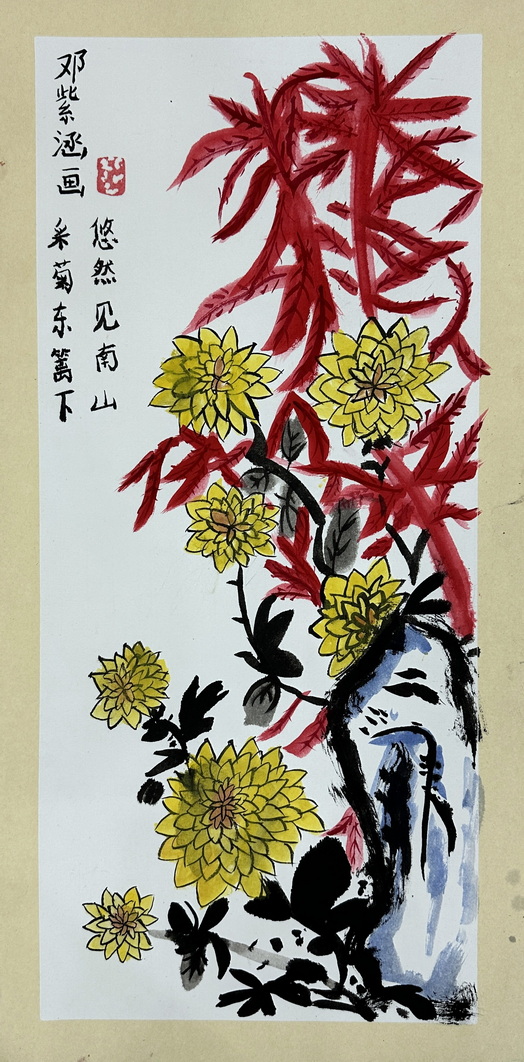 邓紫涵画
采菊东篱下
悠然见南山